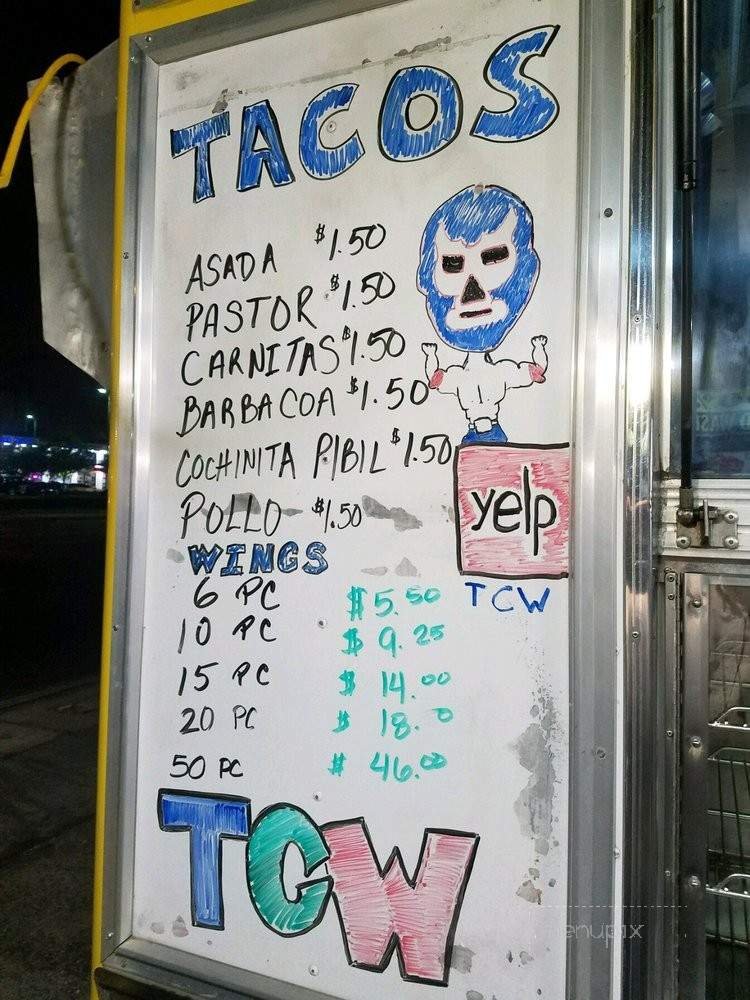 TACOS
ASADA $1.50
PASTOR $1.50
CARNITAS $1.50
BARBACOA $1.50
COCHINITA PIBIL $1.50
POLLO $1.50
yelp
WINGS
6 PC $5.50
TCW
10 PC $9.25
15 PC $14.00
20 PC $18.0
50 PC $46.00
TCW
menupix